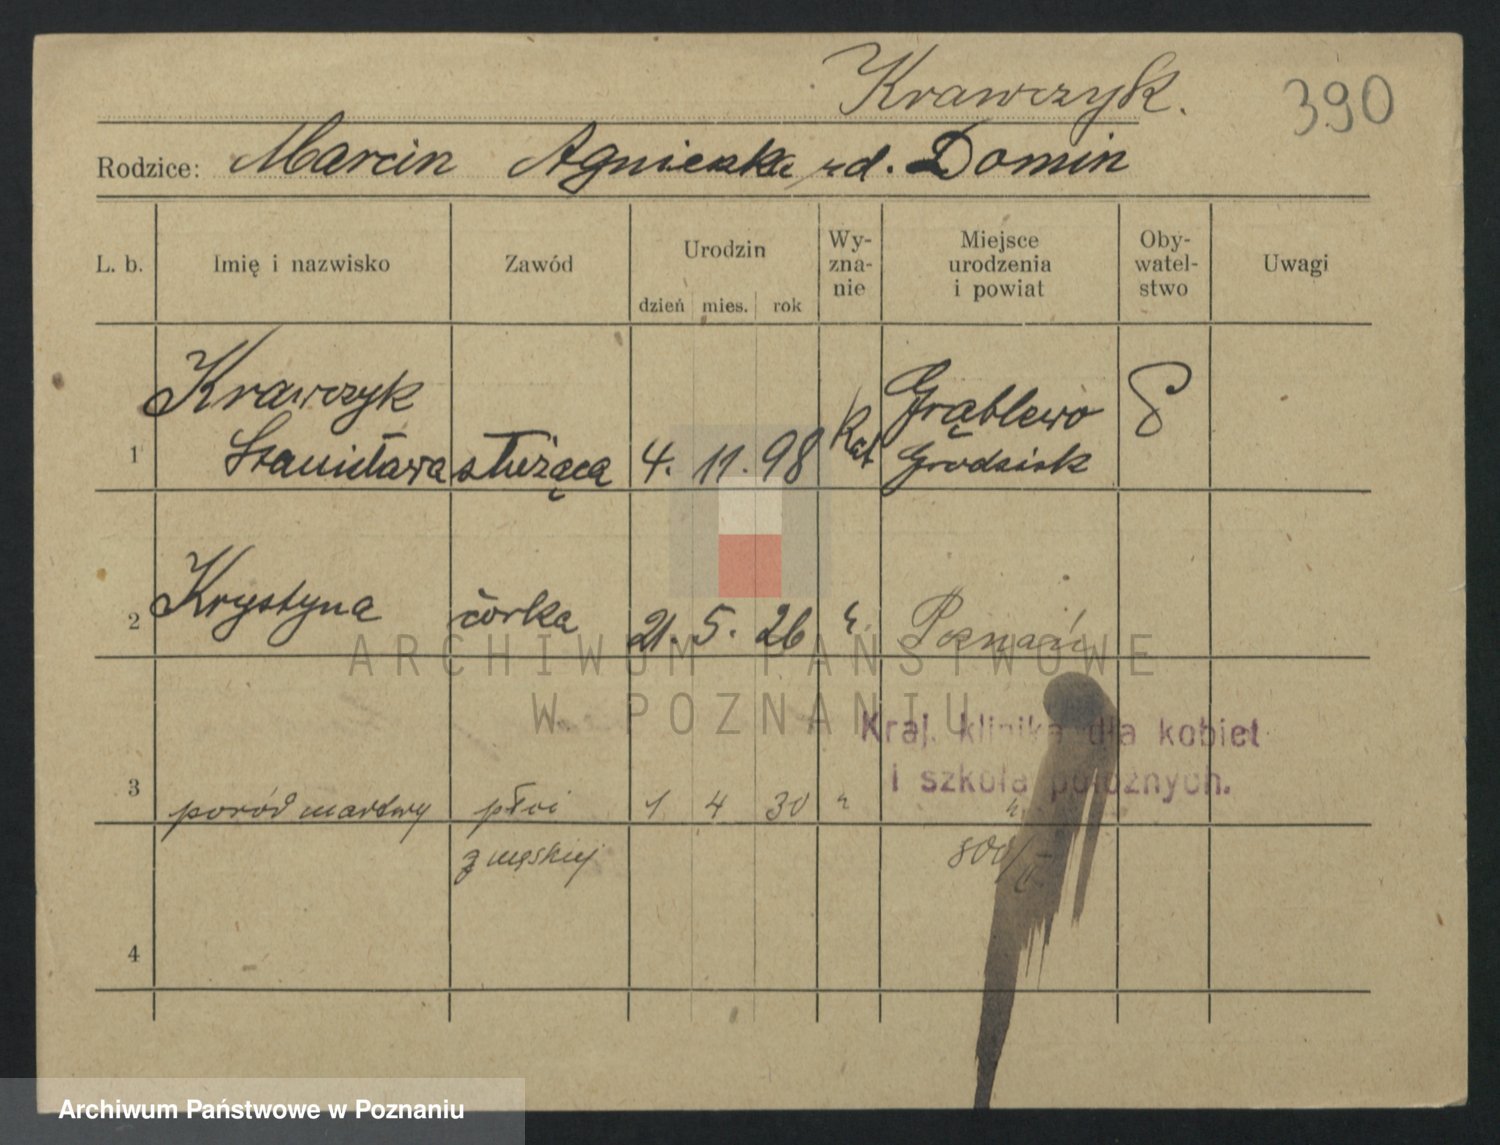 Krawczyk.
390
Rodzice: Marcin Agnieszka zd. Domin
L. b. Imię i nazwisko Zawód Urodzin dzień mies. rok Wy-zna-nie Miejsce urodzenia i powiat Oby-watel-stwo Uwagi
Krawczyk Grąblewo
1 Stanisława służąca 4. 11. 98 Kat Grodzisk
2 Krystyna córka 21. 5. 26 Poznań
ARCHIWUM PAŃSTWOWE
W POZNANIU
Kraj. klinika dla kobiet
i szkoła położnych.
3 poród martwy płci 1 4 30
męskiej 800/II
4
Archiwum Państwowe w Poznaniu